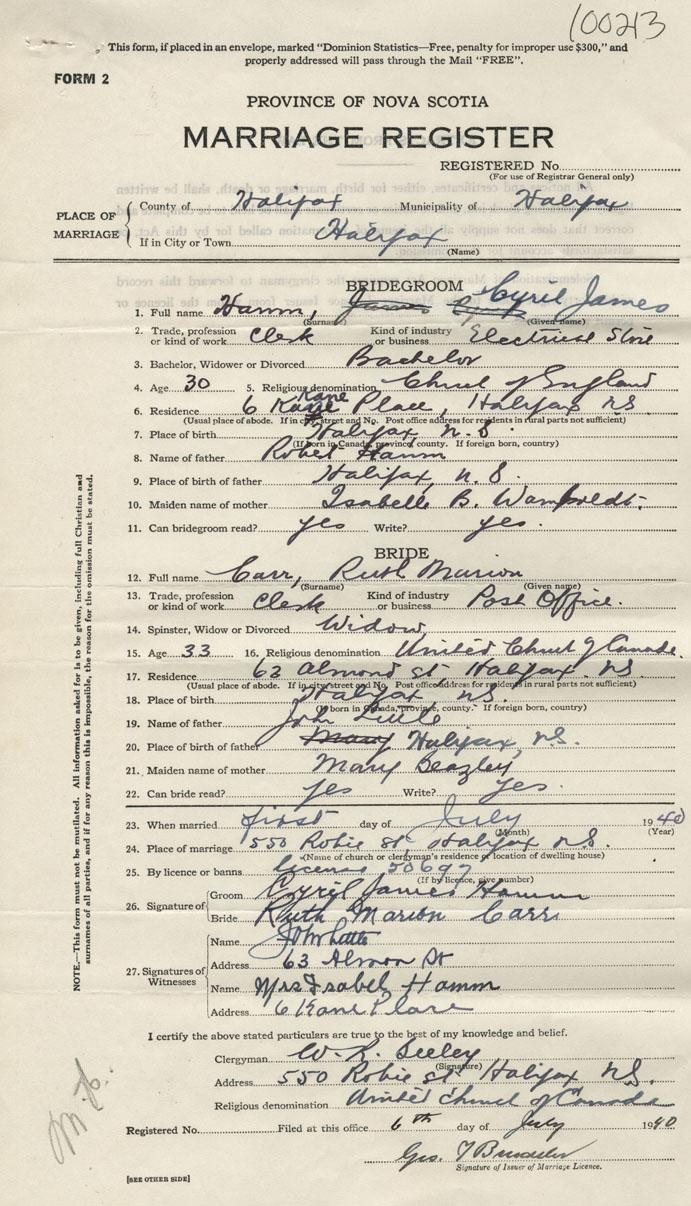 100213
This form, if placed in an envelope, marked "Dominion Statistics—Free, penalty for improper use $300," and
properly addressed will pass through the Mail "FREE".
FORM 2
PROVINCE OF NOVA SCOTIA
MARRIAGE REGISTER
REGISTERED No.
(For use of Registrar General only)
PLACE OF MARRIAGE
County of Halifax Municipality of Halifax
If in City or Town Halifax
(Name)
BRIDEGROOM
1. Full name Hamm, James Cyril Cyril James
(Surname) (Given name)
2. Trade, profession or kind of work Clerk Kind of industry or business Electrical Store
3. Bachelor, Widower or Divorced Bachelor
4. Age 30 5. Religious denomination Church of England
6. Residence 6 Kane Place, Halifax N.S.
(Usual place of abode. If in city, street and No. Post office address for residents in rural parts not sufficient)
7. Place of birth Halifax, N.S
(If born in Canada, province, county. If foreign born, country)
8. Name of father Robert Hamm
9. Place of birth of father Halifax, N.S.
10. Maiden name of mother Isabelle B. Wamboldt.
11. Can bridegroom read? yes Write? yes.
BRIDE
12. Full name Carr, Ruth Marion
(Surname) (Given name)
13. Trade, profession or kind of work Clerk Kind of industry or business Post Office.
14. Spinster, Widow or Divorced Widow
15. Age 33 16. Religious denomination United Church of Canada.
17. Residence 63 Almond St, Halifax N.S.
(Usual place of abode. If in city street and No. Post office address for residents in rural parts not sufficient)
18. Place of birth Halifax N.S.
(If born in Canada, province, county. If foreign born, country)
19. Name of father John Little
20. Place of birth of father Mary Halifax, N.S.
21. Maiden name of mother Mary Beazley
22. Can bride read? yes Write? yes.
23. When married first day of July 1940
(Month) (Year)
24. Place of marriage 550 Robie St Halifax N.S.
(Name of church or clergyman's residence or location of dwelling house)
25. By licence or banns license 50697
(If by licence, give number)
26. Signature of
Groom Cyril James Hamm
Bride Ruth Marion Carr
27. Signatures of Witnesses
Name John Little
Address 63 Almon St
Name Mrs Isabel Hamm
Address 6 Kane Place
I certify the above stated particulars are true to the best of my knowledge and belief.
Clergyman W. R. Seeley
(Signature)
Address 550 Robie St Halifax N.S.
Religious denomination United Church of Canada
Registered No. Filed at this office 6th day of July 1940
Geo.
Signature of Issuer of Marriage Licence.
[SEE OTHER SIDE]
NOTE.—This form must not be mutilated. All information asked for is to be given, including full Christian and
surnames of all parties, and if for any reason this is impossible, the reason for the omission must be stated.